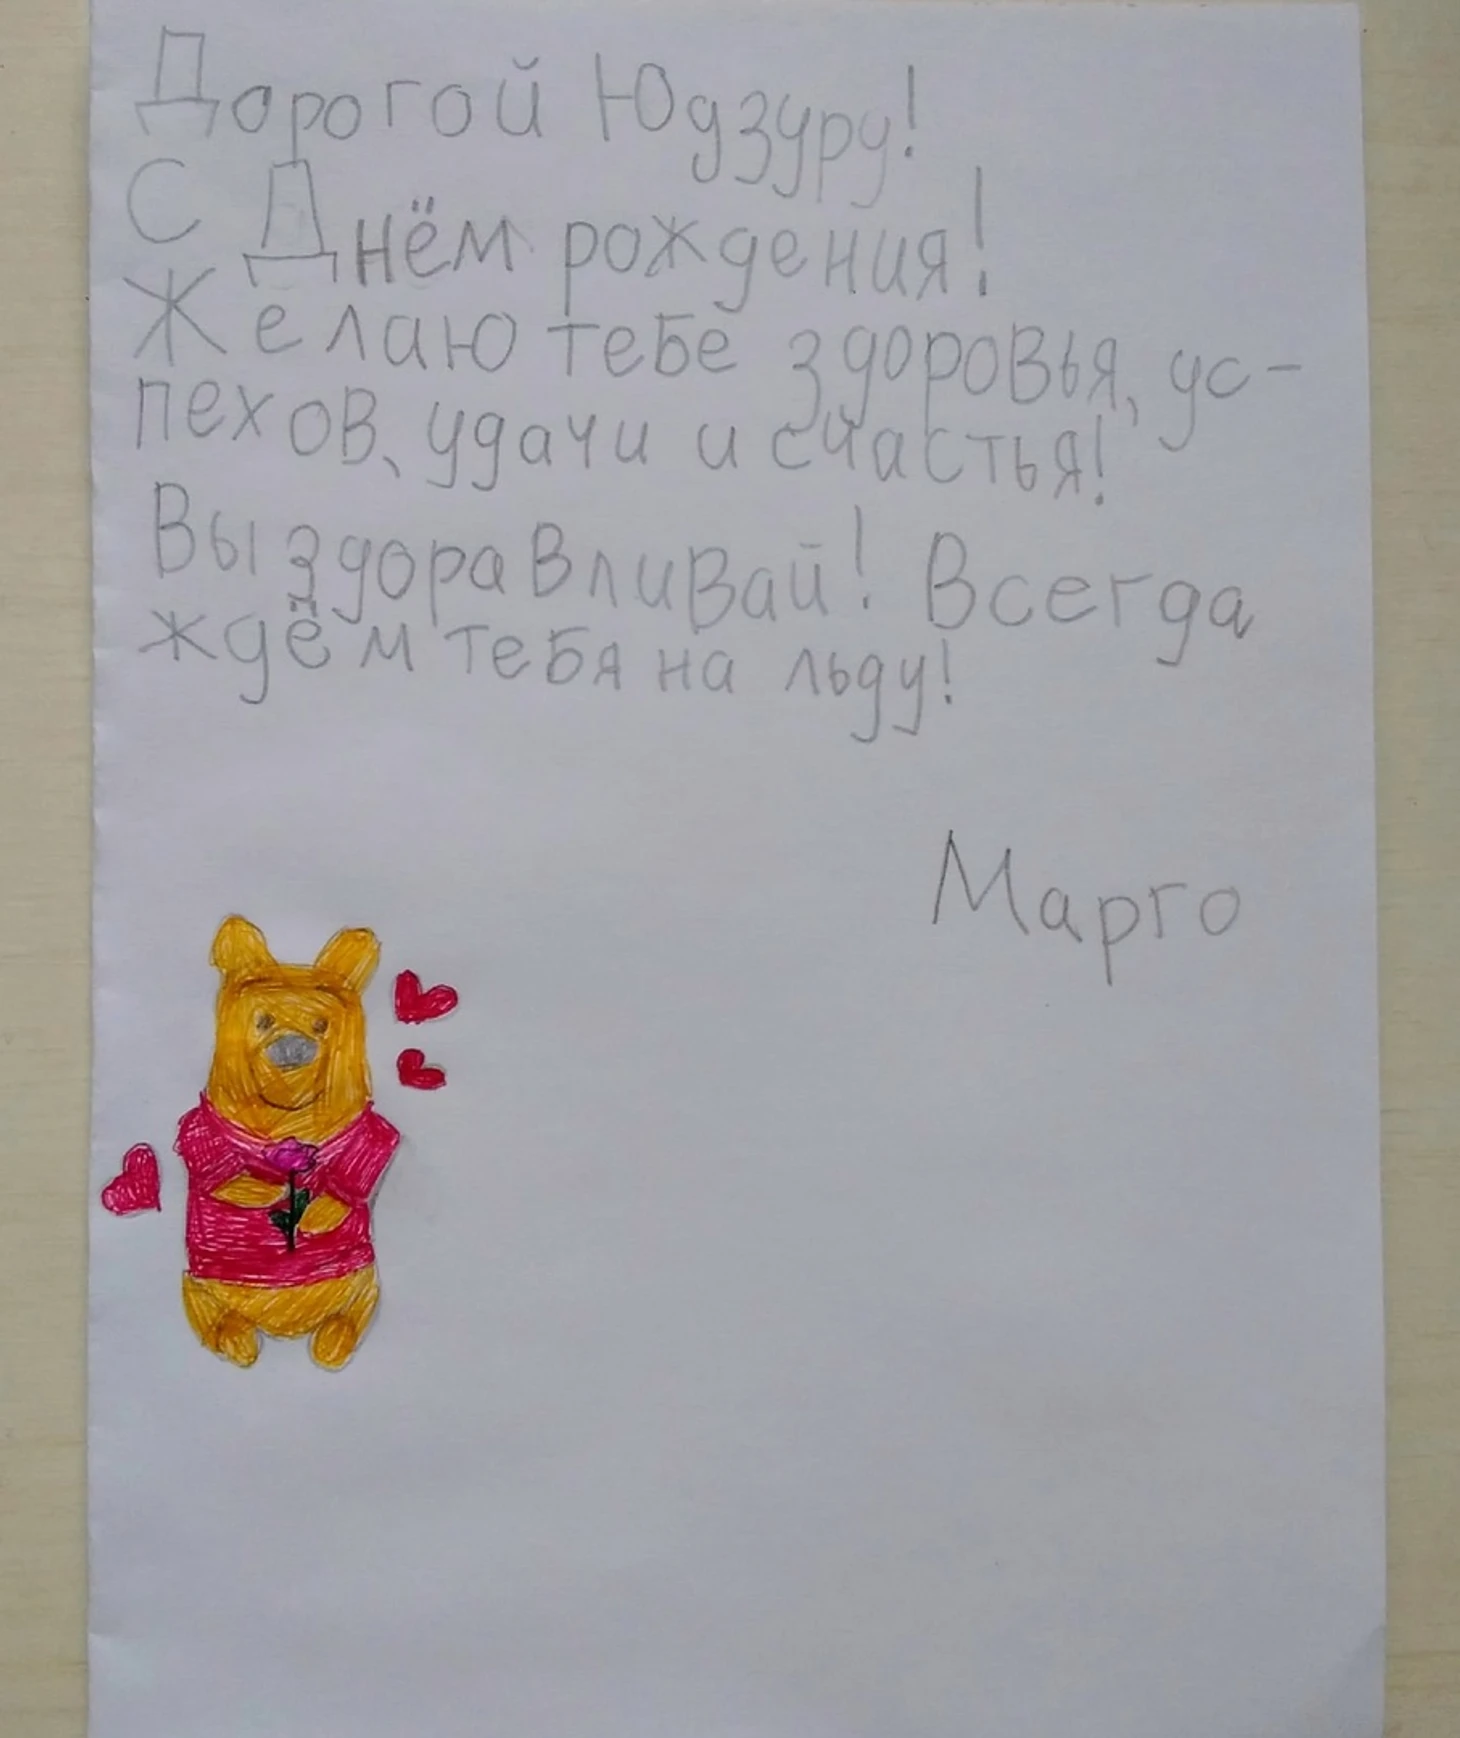 Дорогой Юдзуру!
С Днём рождения!
Желаю тебе здоровья, ус-
пехов, удачи и счастья!
Выздоравливай! Всегда
ждём тебя на льду!
Марго